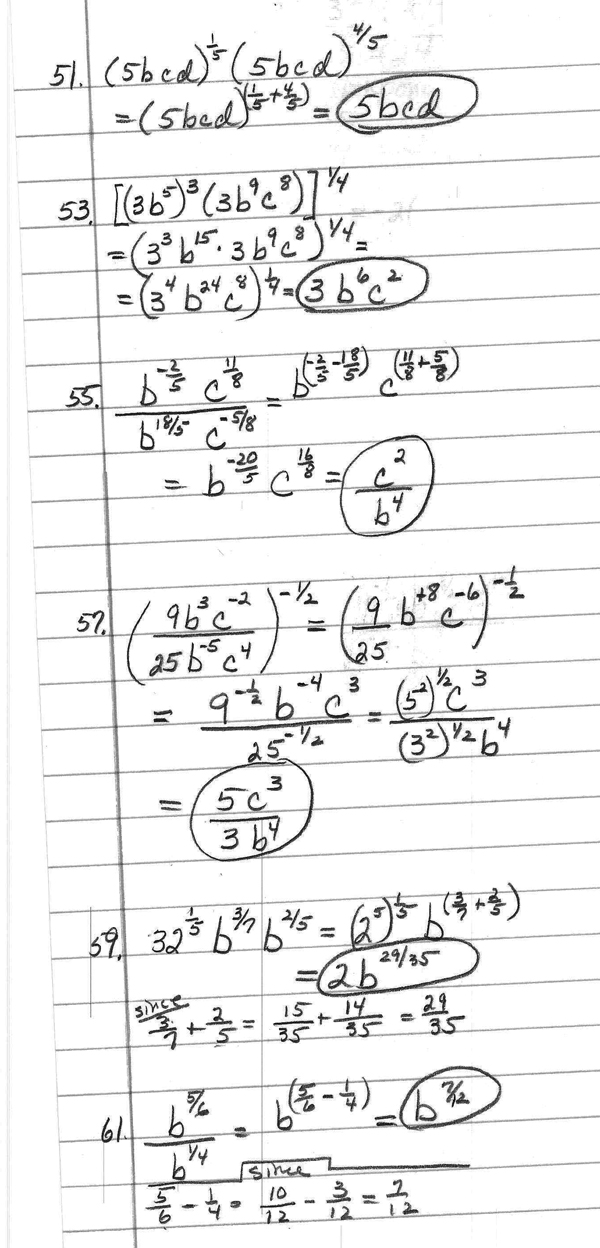 51. (5bcd)^{1/5} (5bcd)^{4/5}
= (5bcd)^{(1/5 + 4/5)} = 5bcd
53. [(3b^5)^3 (3b^9 c^8)]^{1/4}
= (3^3 b^{15} · 3b^9 c^8)^{1/4} =
= (3^4 b^{24} c^8)^{1/4} = 3b^6 c^2
55. \frac{b^{-2/5} c^{11/8}}{b^{18/5} c^{-5/8}} = b^{(-2/5 - 18/5)} c^{(11/8 + 5/8)}
= b^{-20/5} c^{16/8} = \frac{c^2}{b^4}
57. (\frac{9b^3 c^{-2}}{25b^{-5} c^4})^{-1/2} = (\frac{9}{25} b^{+8} c^{-6})^{-1/2}
= \frac{9^{-1/2} b^{-4} c^3}{25^{-1/2}} = \frac{(5^2)^{1/2} c^3}{(3^2)^{1/2} b^4}
= \frac{5c^3}{3b^4}
59. 32^{1/5} b^{3/7} b^{2/5} = (2^5)^{1/5} b^{(3/7 + 2/5)}
= 2b^{29/35}
since
\frac{3}{7} + \frac{2}{5} = \frac{15}{35} + \frac{14}{35} = \frac{29}{35}
61. \frac{b^{5/6}}{b^{1/4}} = b^{(5/6 - 1/4)} = b^{7/12}
since
\frac{5}{6} - \frac{1}{4} = \frac{10}{12} - \frac{3}{12} = \frac{7}{12}